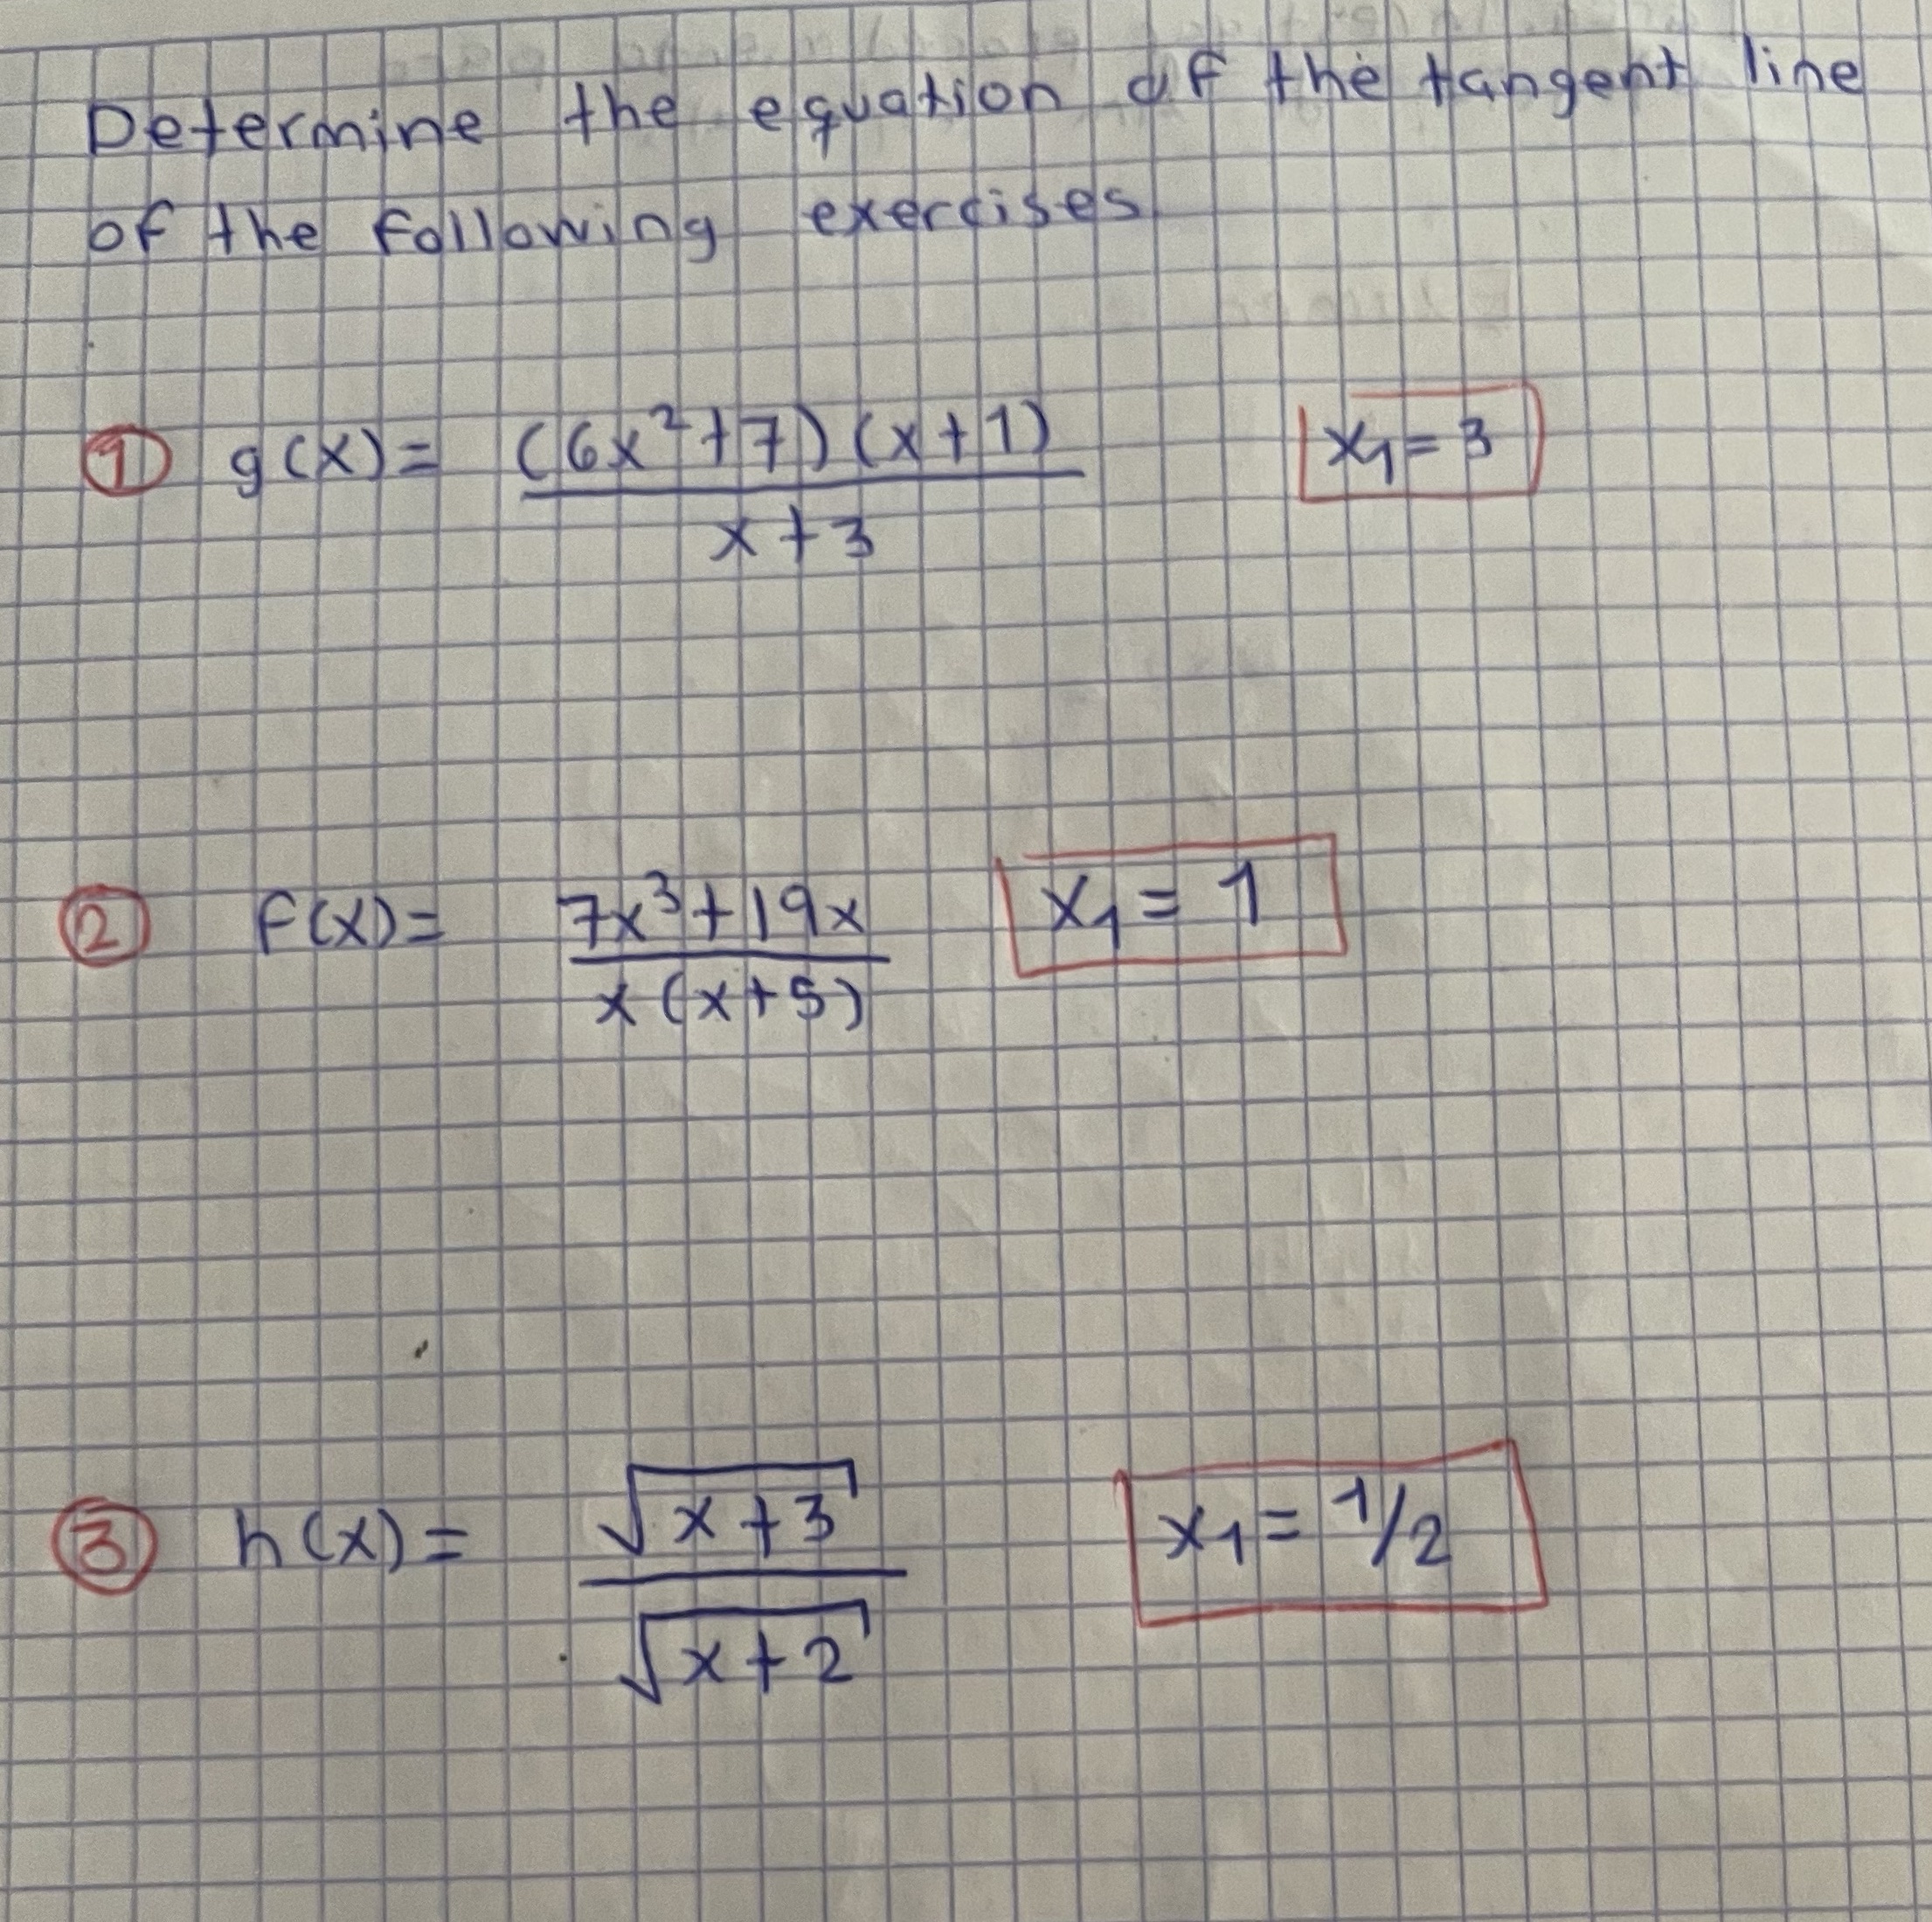 Determine the equation of the tangent line
of the following exercises
① g(x) = (6x²+7)(x+1) x₁ = 3
x+3
② f(x) = 7x³+19x x₁ = 1
x(x+5)
③ h(x) = √x+3 x₁ = 1/2
√x+2